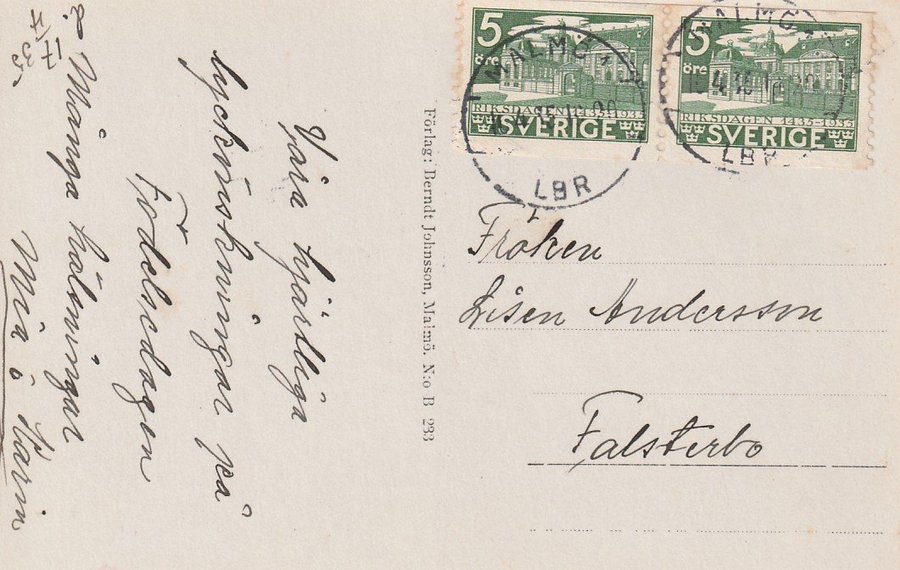 17/4 35
Våra hjärtliga
lyckönskningar på
Födelsedagen
Många hälsningar
Mia o Karin
Förlag: Berndt Johnsson, Malmö. N:o B 233
5 öre
RIKSDAGEN 1435-1935
SVERIGE
MALMÖ 1
LBR
5 öre
RIKSDAGEN 1435-1935
SVERIGE
MALMÖ 1
LBR
Fröken
Lisen Andersson
Falsterbo